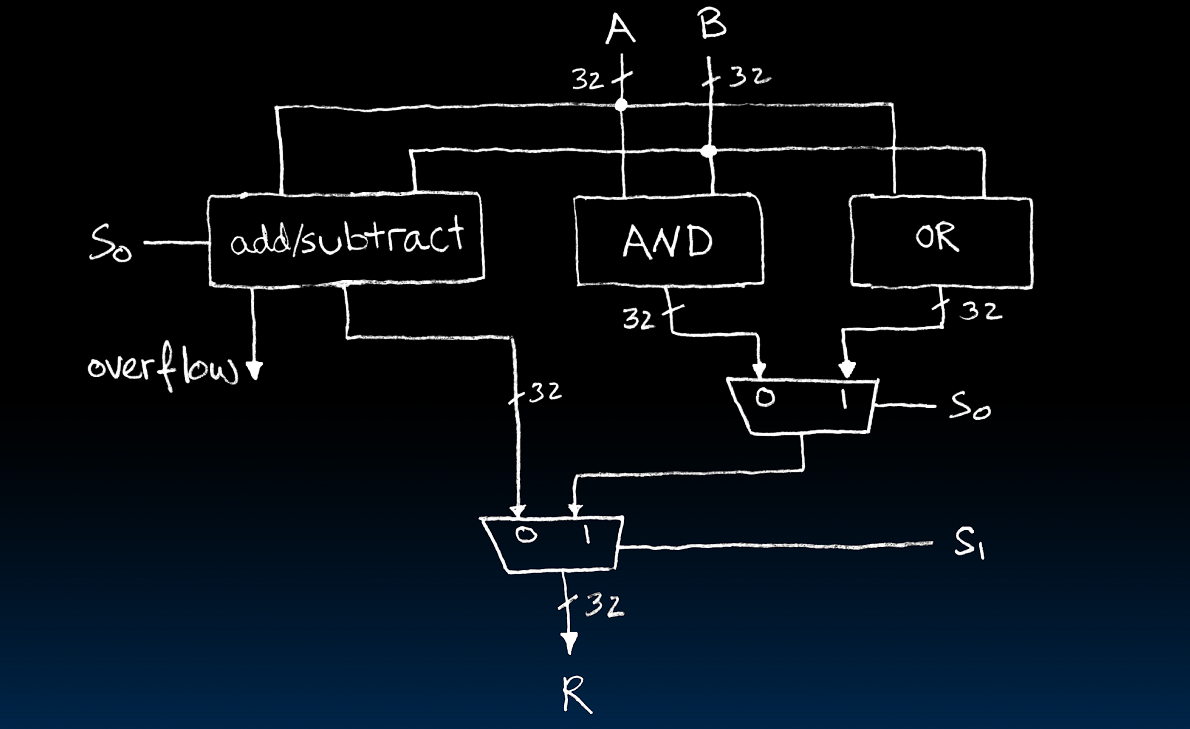 A B
32 32
S0 add/subtract AND OR
32 32
overflow
32
0 1 S0
0 1 S1
32
R